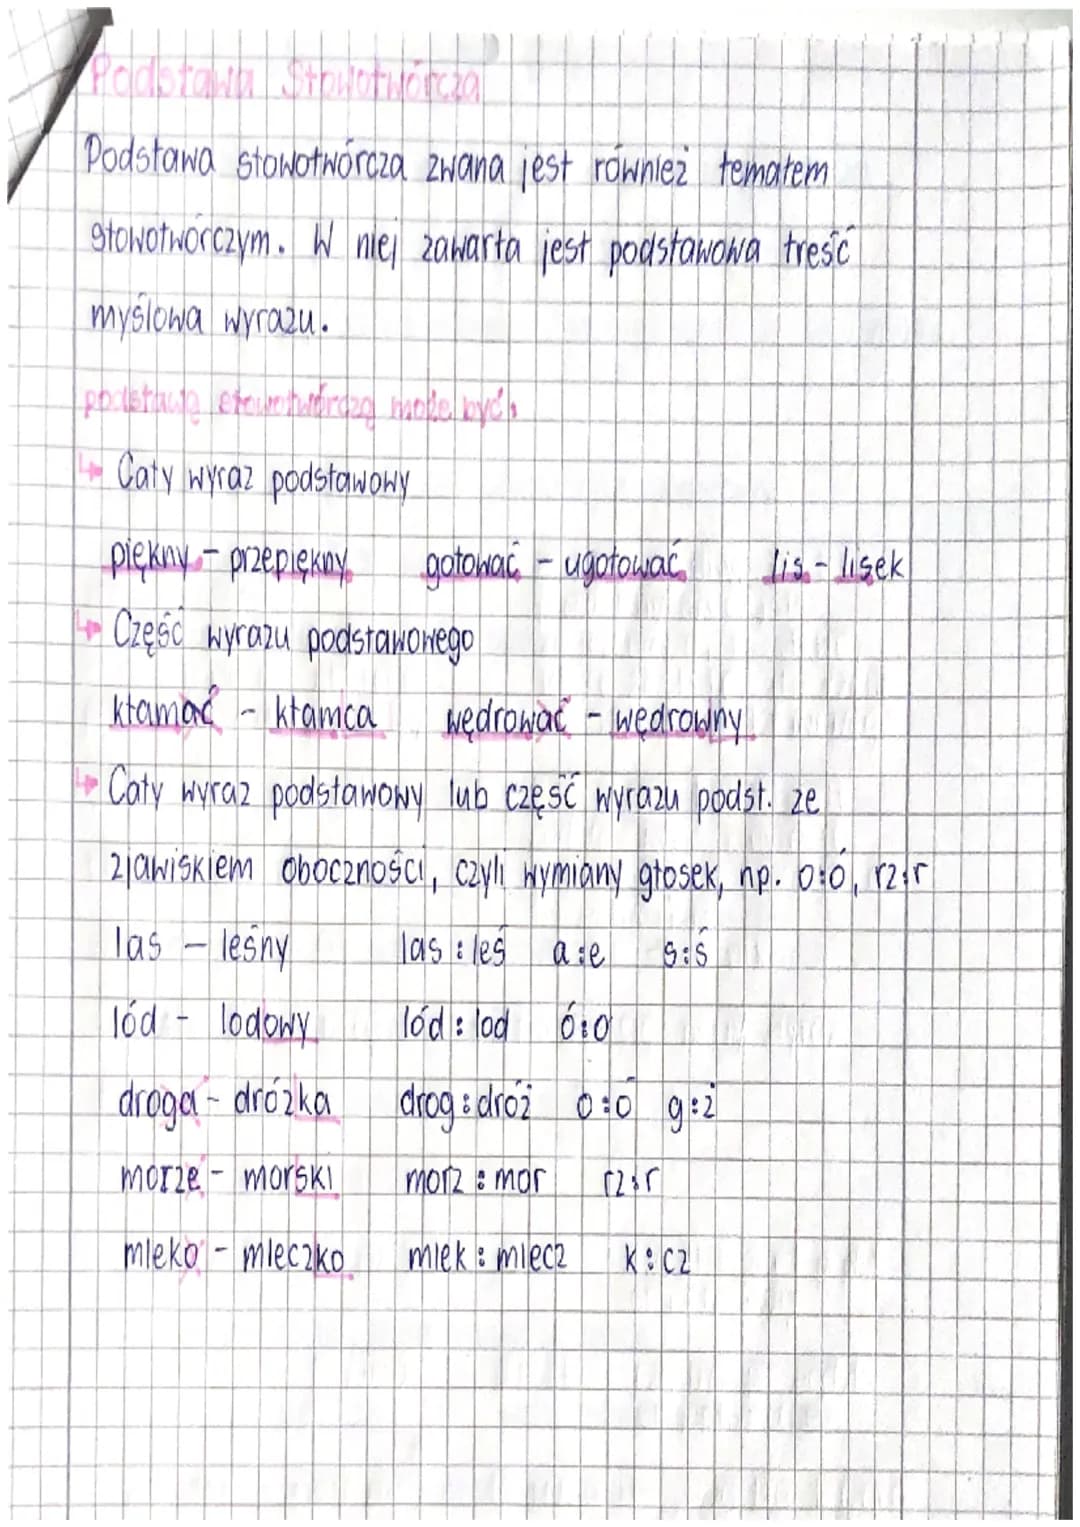 Podstawa Słowotwórcza
Podstawa słowotwórcza zwana jest również tematem
słowotwórczym. W niej zawarta jest podstawowa treść
myślowa wyrazu.
podstawą słowotwórczą może być:
↳ Cały wyraz podstawowy
piękny - przepiękny gotować - ugotować lis - lisek
↳ Część wyrazu podstawowego
kłamać - kłamca wędrować - wędrowny
↳ Cały wyraz podstawowy lub część wyrazu podst. ze
zjawiskiem oboczności, czyli wymiany głosek, np. o:ó, rz:r
las - leśny las : leś a:e s:ś
lód - lodowy lód : lod ó:o
droga - dróżka drog : dróż o:ó g:ż
morze - morski morz : mor rz:r
mleko - mleczko mlek : mlecz k:cz